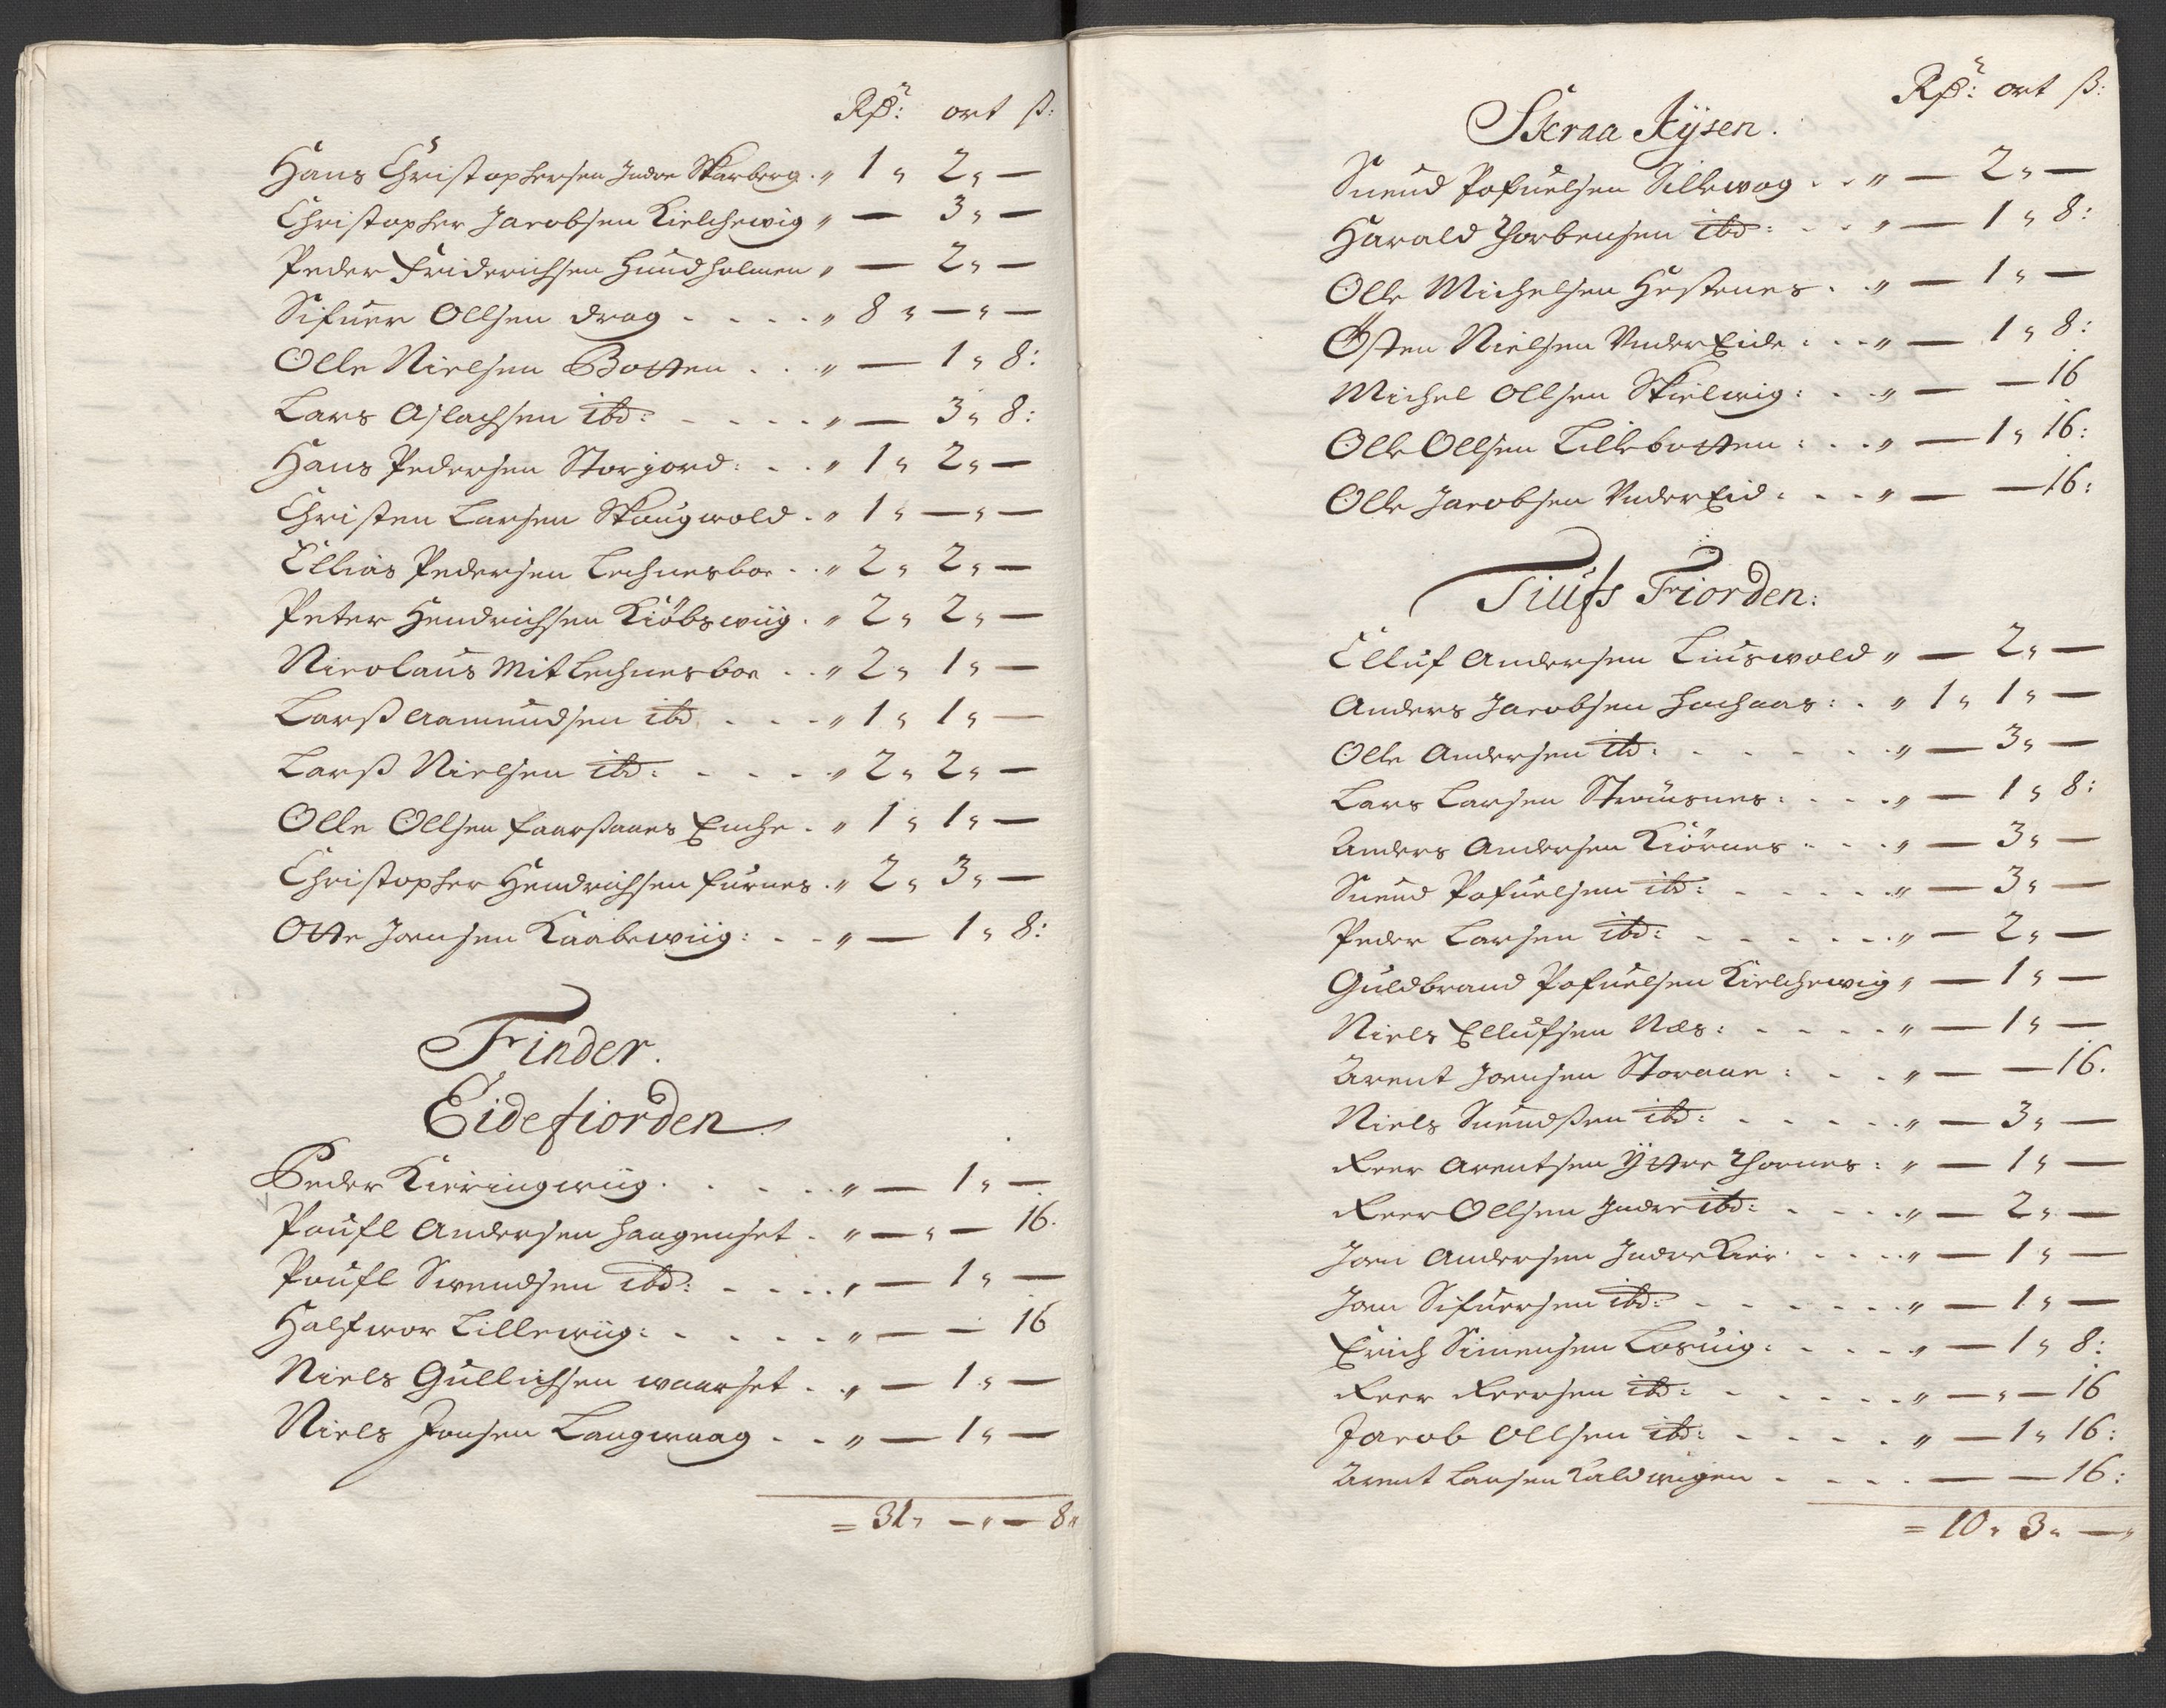 Rdr: ort ß:
Hans Christophersen Indre Skarberg. „ 1 „ 2 „ —
Christopher Jacobsen Kielchewig „ — 3 „ —
Peder Friderichsen Hundholmen „ — 2 „ —
Sifuer Ollsen Drag - - - - „ 8 „ — „ —
Olle Nielsen Botten . . „ — 1 „ 8:
Lars Aslachsen ibd: - - - - „ — 3 „ 8:
Hans Pedersen Storjord: - - „ 1 „ 2 „ —
Christen Larsen Skougwold - „ 1 „ — „ —
Ellias Pedersen Lechnesboe - - „ 2 „ 2 „ —
Peter Hendrichsen Kiöbswiig . „ 2 „ 2 „ —
Nicolaus Mit Lechnesboe - - „ 2 „ 1 „ —
Larß Aamundsen ibd - - - „ 1 „ 1 „ —
Larß Nielsen ibd: - - - - „ 2 „ 2 „ —
Olle Ollsen Enche . „ 1 „ 1 „ —
Christopher Hendrichsen Furnes . „ 2 „ 3 „ —
Otte Joensen Kaabewiig: - - „ — 1 „ 8:
Finder.
Eidefiorden
Peder Kieringwiig - - - - „ — 1 „ —
Poufl Andersen Haagenset . „ — „ — 16.
Poufl Swendsen ibd: - - - - „ — 1 „ —
Halfwor Lillewiig: - - - - „ — — 16
Niels Gullichsen waarset . „ — 1 „ —
Niels Jonsen Langwaag - - „ — 1 „ —
= 31 „ — „ — 8 „
Rdr: ort ß:
Skraa Kysen.
Suend Pofuelsen Sillewog - - „ — 2 „ —
Harald Thorbensen ibd: - - „ — 1 „ 8:
Olle Michelsen Hestenes . „ — 1 „ —
Östen Nielsen Under Eide . - - „ — 1 „ 8:
Michel Ollsen Skielwig: - - „ — — 16
Olle Ollsen Lillebotten: - - „ — 1 „ 16:
Olle Jacobsen Under Eid: - - „ — — 16:
Tiufs Fiorden:
Elluf Andersen Liuswold „ — 2 „ —
Anders Jacobsen Hochaas: . „ 1 „ 1 „ —
Olle Andersen ibd: - - - - „ — 3 „ —
Lars Larsen Strømsnes: - - - „ — 1 „ 8:
Anders Andersen Kiörnes - - - „ — 3 „ —
Suend Pofuelsen ibd: - - - - „ — 3 „ —
Peder Larsen ibd: - - - - „ — 2 „ —
Guldbrand Pofuelsen Kielchewig „ — 1 „ —
Niels Ellufsen Næs: - - - - „ — 1 „ —
Arent Joensen Storaae: - - „ — — 16.
Niels Suendßen ibd: - - - - „ — 3 „ —
Reer Arentsen Ÿttre Thornes: „ — 1 „ —
Reer Ollsen Indre ibd: - - - „ — 2 „ —
Joen Andersen Indre Kier - - - „ — 1 „ —
Joen Sifuersen ibd: - - - - „ — 1 „ —
Erich Simensen Losuig: - - - „ — 1 „ 8:
Reer Reersen ibd: - - - - „ — „ — 16
Jacob Ollsen ibd: - - - - „ — 1 „ 16:
Arent Larsen Kaldwigen - - - - — — 16:
= 10 „ 3 „ — „